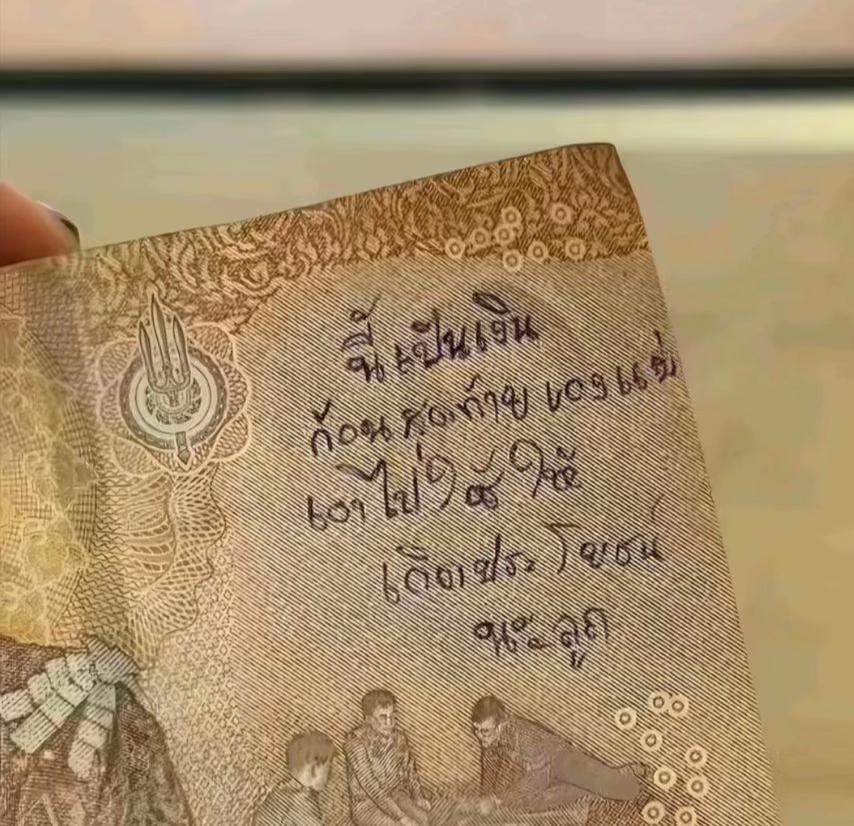 นี้เป็นเงิน
ก้อนสุดท้ายของแม่
เอาไปใช้ให้
เกิดประโยชน์
นะลูก